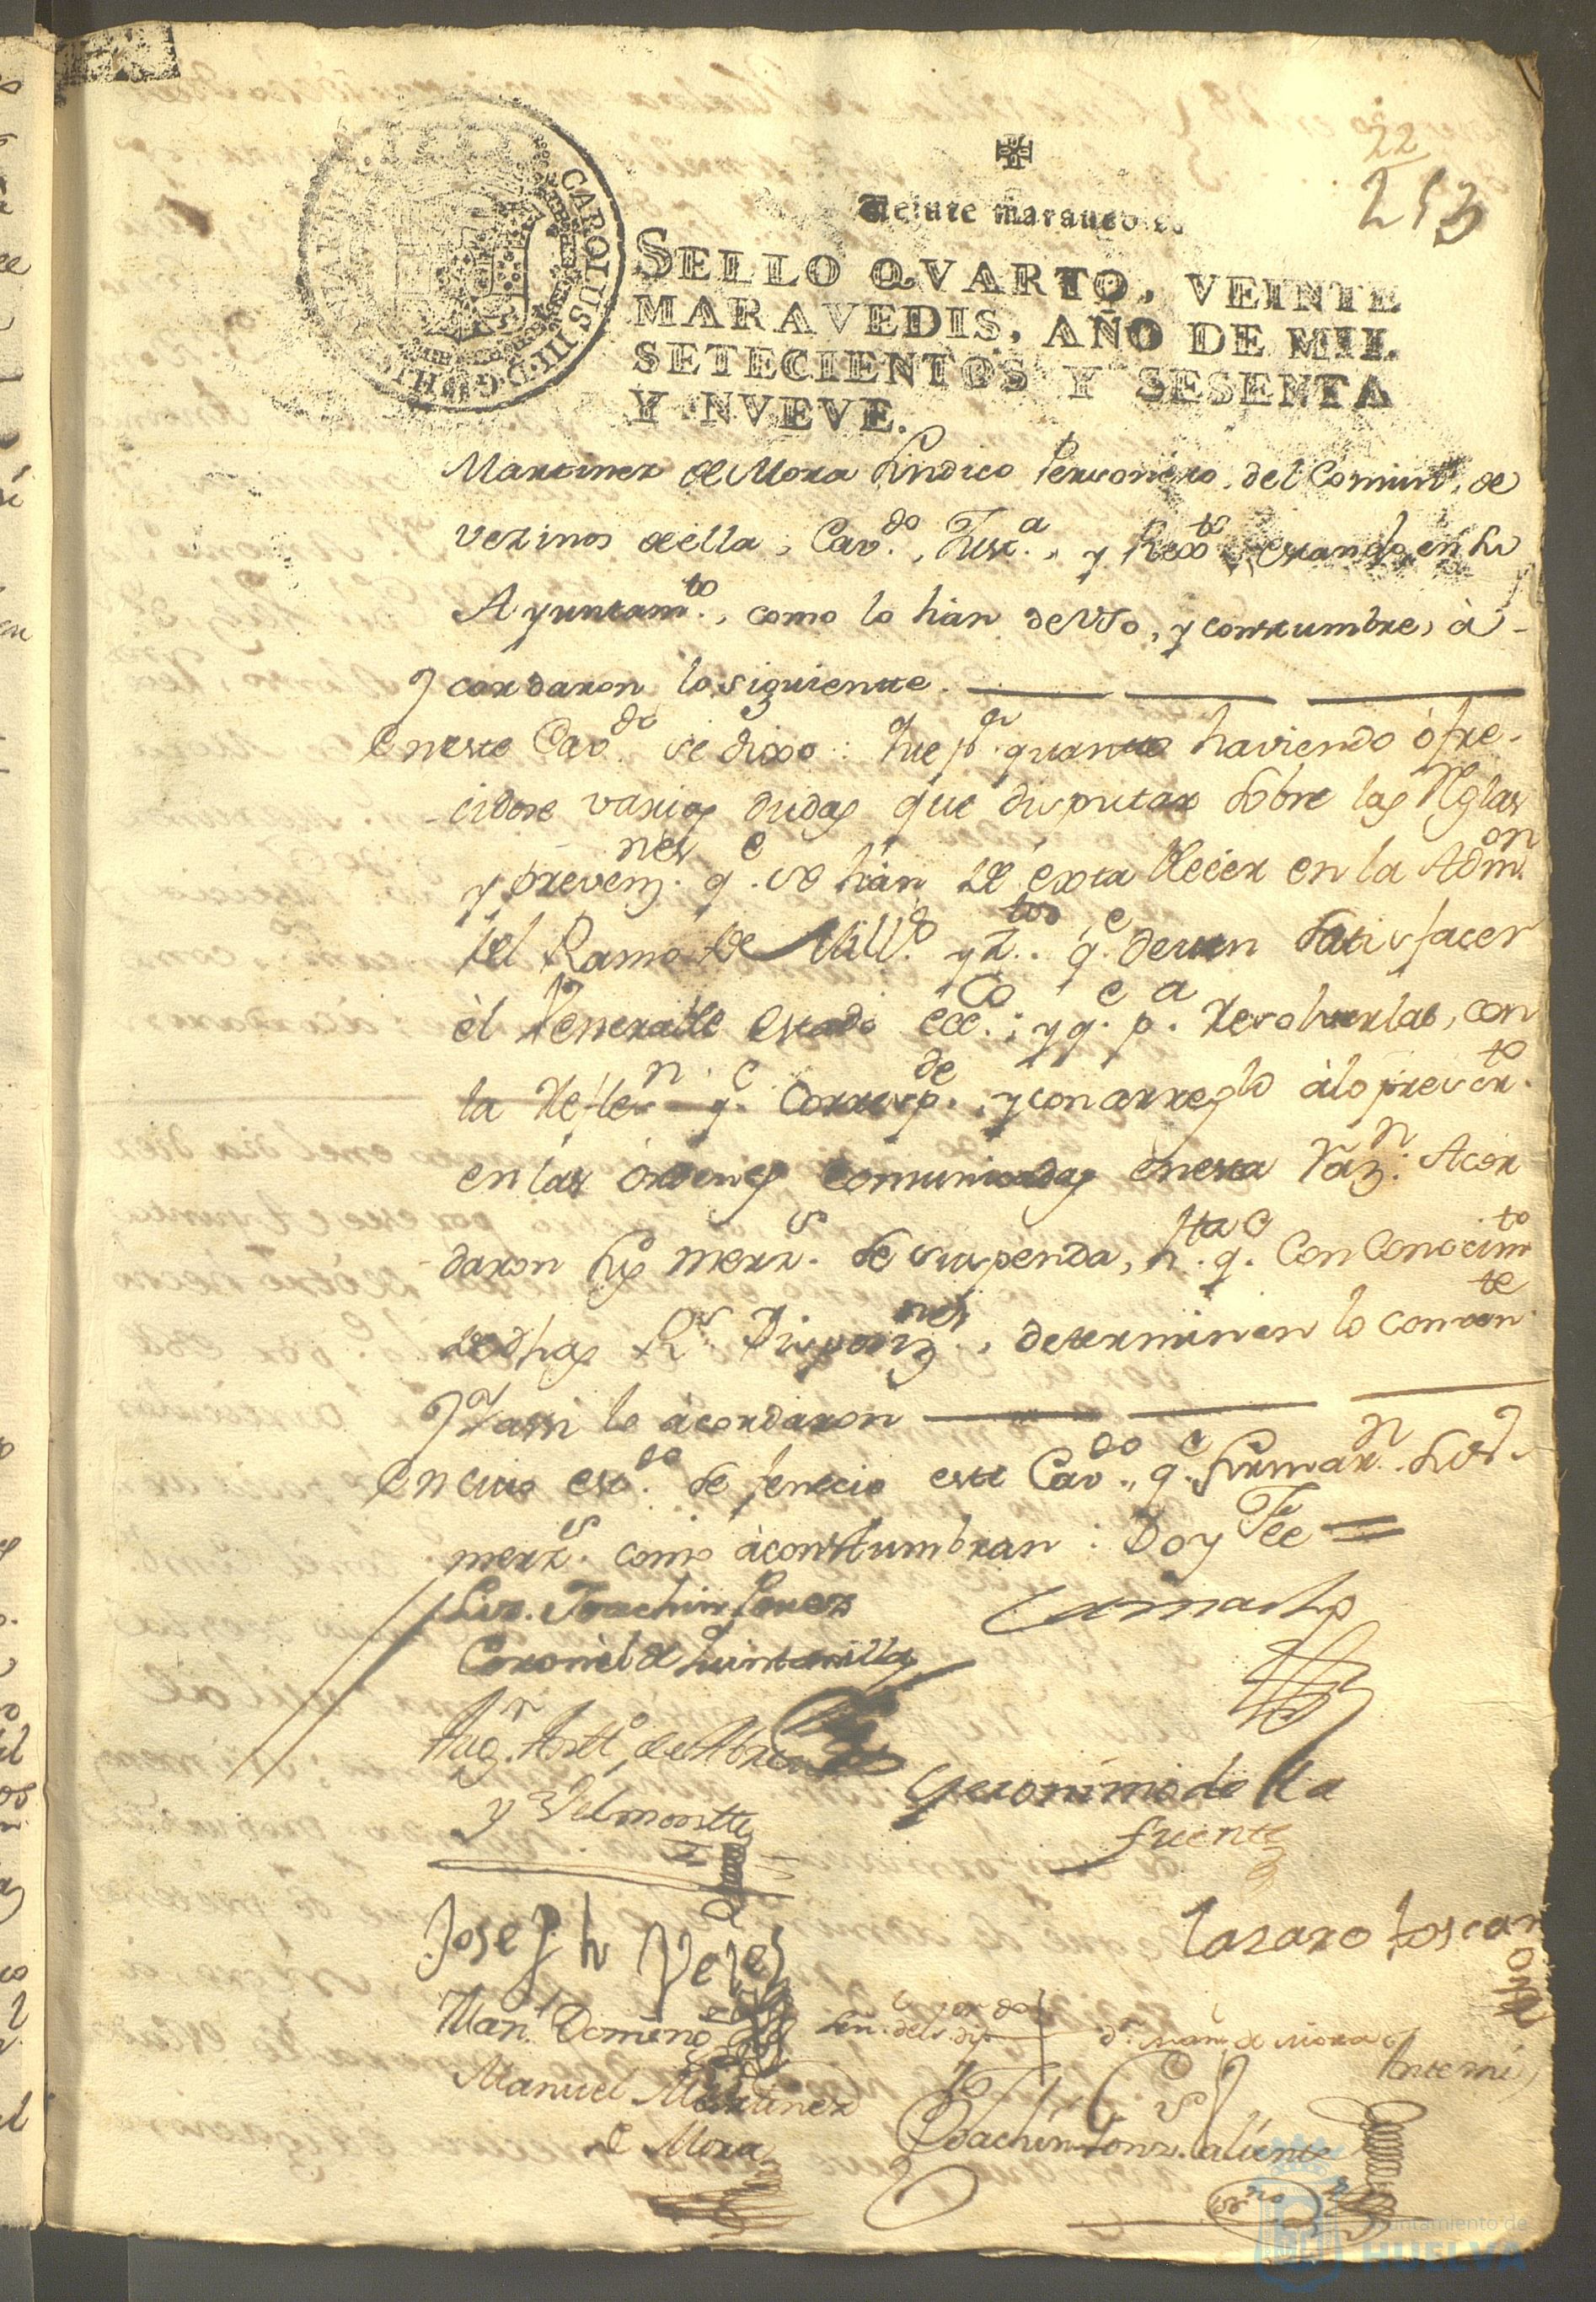 22
253
Veinte maravedis
CAROLUS III D G HISPANIAR
SELLO QVARTO, VEINTE
MARAVEDIS, AÑO DE MIL
SETECIENTOS Y SESENTA
Y NVEVE.
Martinez de Mora Sindico Personero del Comun, de
vezinos de ella, Cav.do, Just.a, y Rex.to, estando en su
Ayuntam.to, como lo han de uso, y constumbre, à
cordaron lo siguiente.
En este Cav.do se dixo: Que p.r quanto haviendo ofre-
cidose varias dudas que disputar sobre las Reglas
y prevenz.nes q.e se hàn de establecer en la Adm.on
del Ramo de Mill.s q.e deven satisfacer
èl Venerable estado ecc.co; y q.e p.a resolverlas, con
la reflex.n q.e corresp.de, y con arreglo à lo preven.to
en las òrdenes comunicadas en esta razn. Acor
daron sus merz.s se suspenda, h.ta q.e con conocim.to
de dhas R.s Disposiz.nes, determinen lo conven.te
Y assi lo àcordaron
En cuio est.do se fenecio este Cav.do, q.e firmar.n sus
merz.s como àconstumbran: Doy Fee =
Liz. Joachin Perez
Coronèl de Quintanilla
Camacho
Aug.n Antt.o de Abreu
y Velmontte
Geronimo de la
fuente
Joseph Velez
Lazaro toscan
o
Man.l Doming.
d.n Man.l de Mora
Manuel Martinez
de Mora
Ante mi
Joachin Gonz. Valiente
Ayuntamiento de
HUELVA